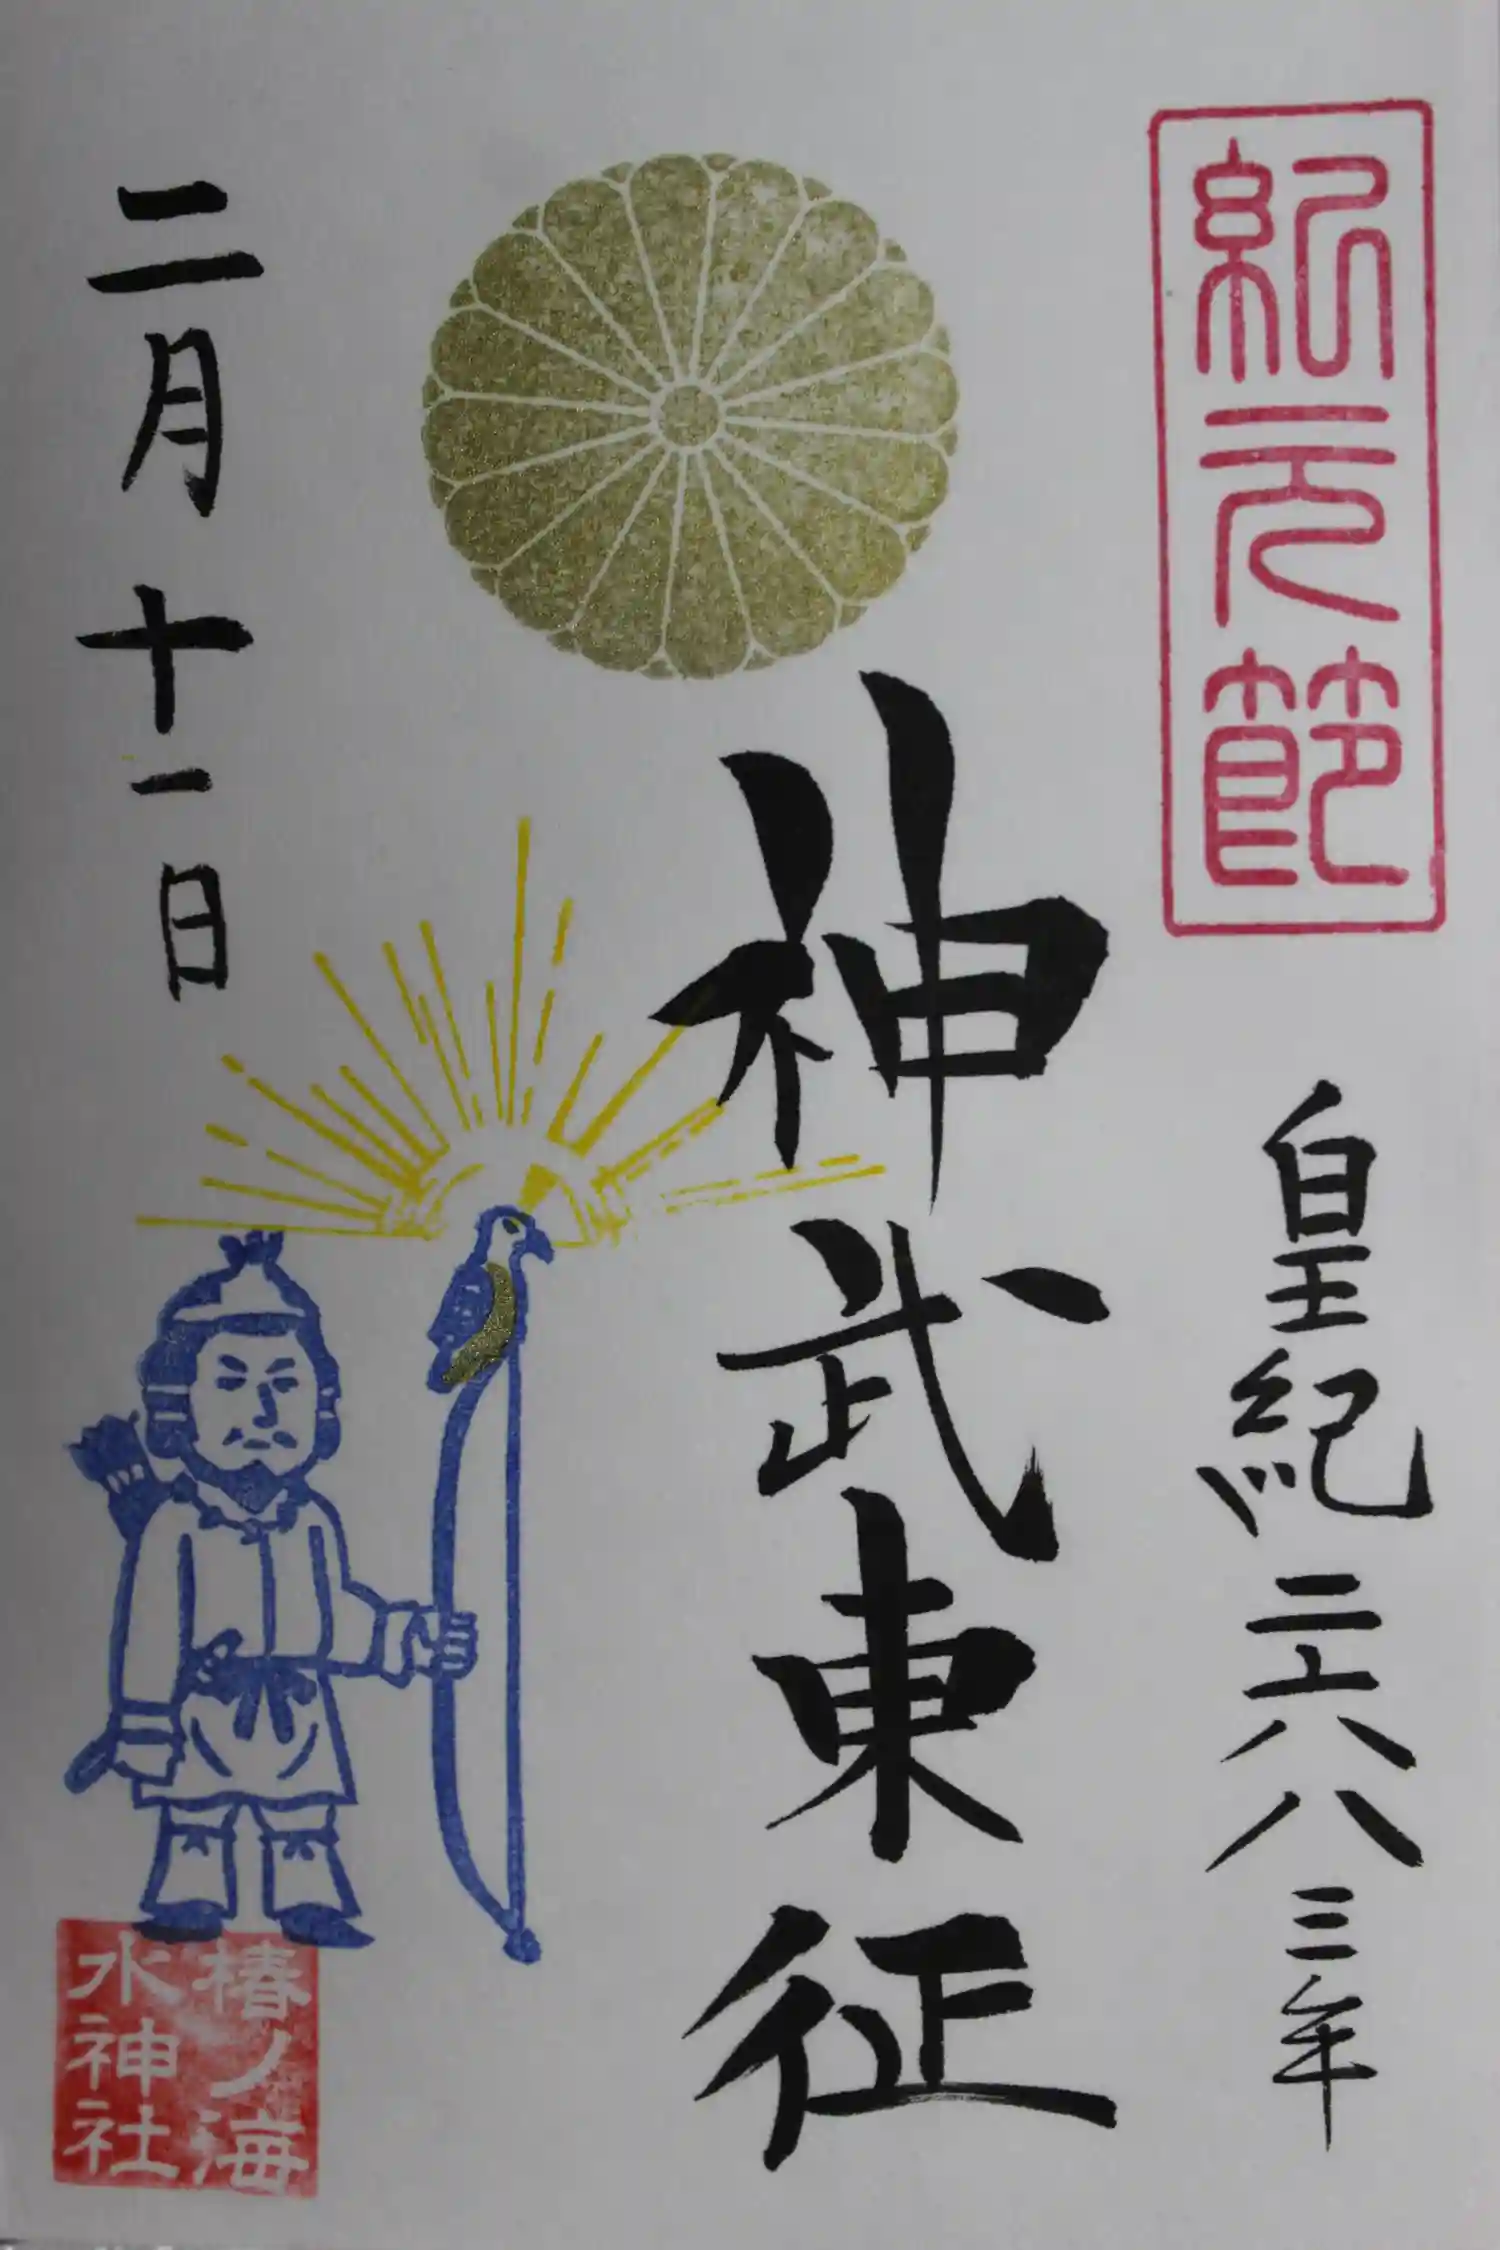 紀元節
皇紀二六八三年
神武東征
二月十一日
椿ノ海
水神社